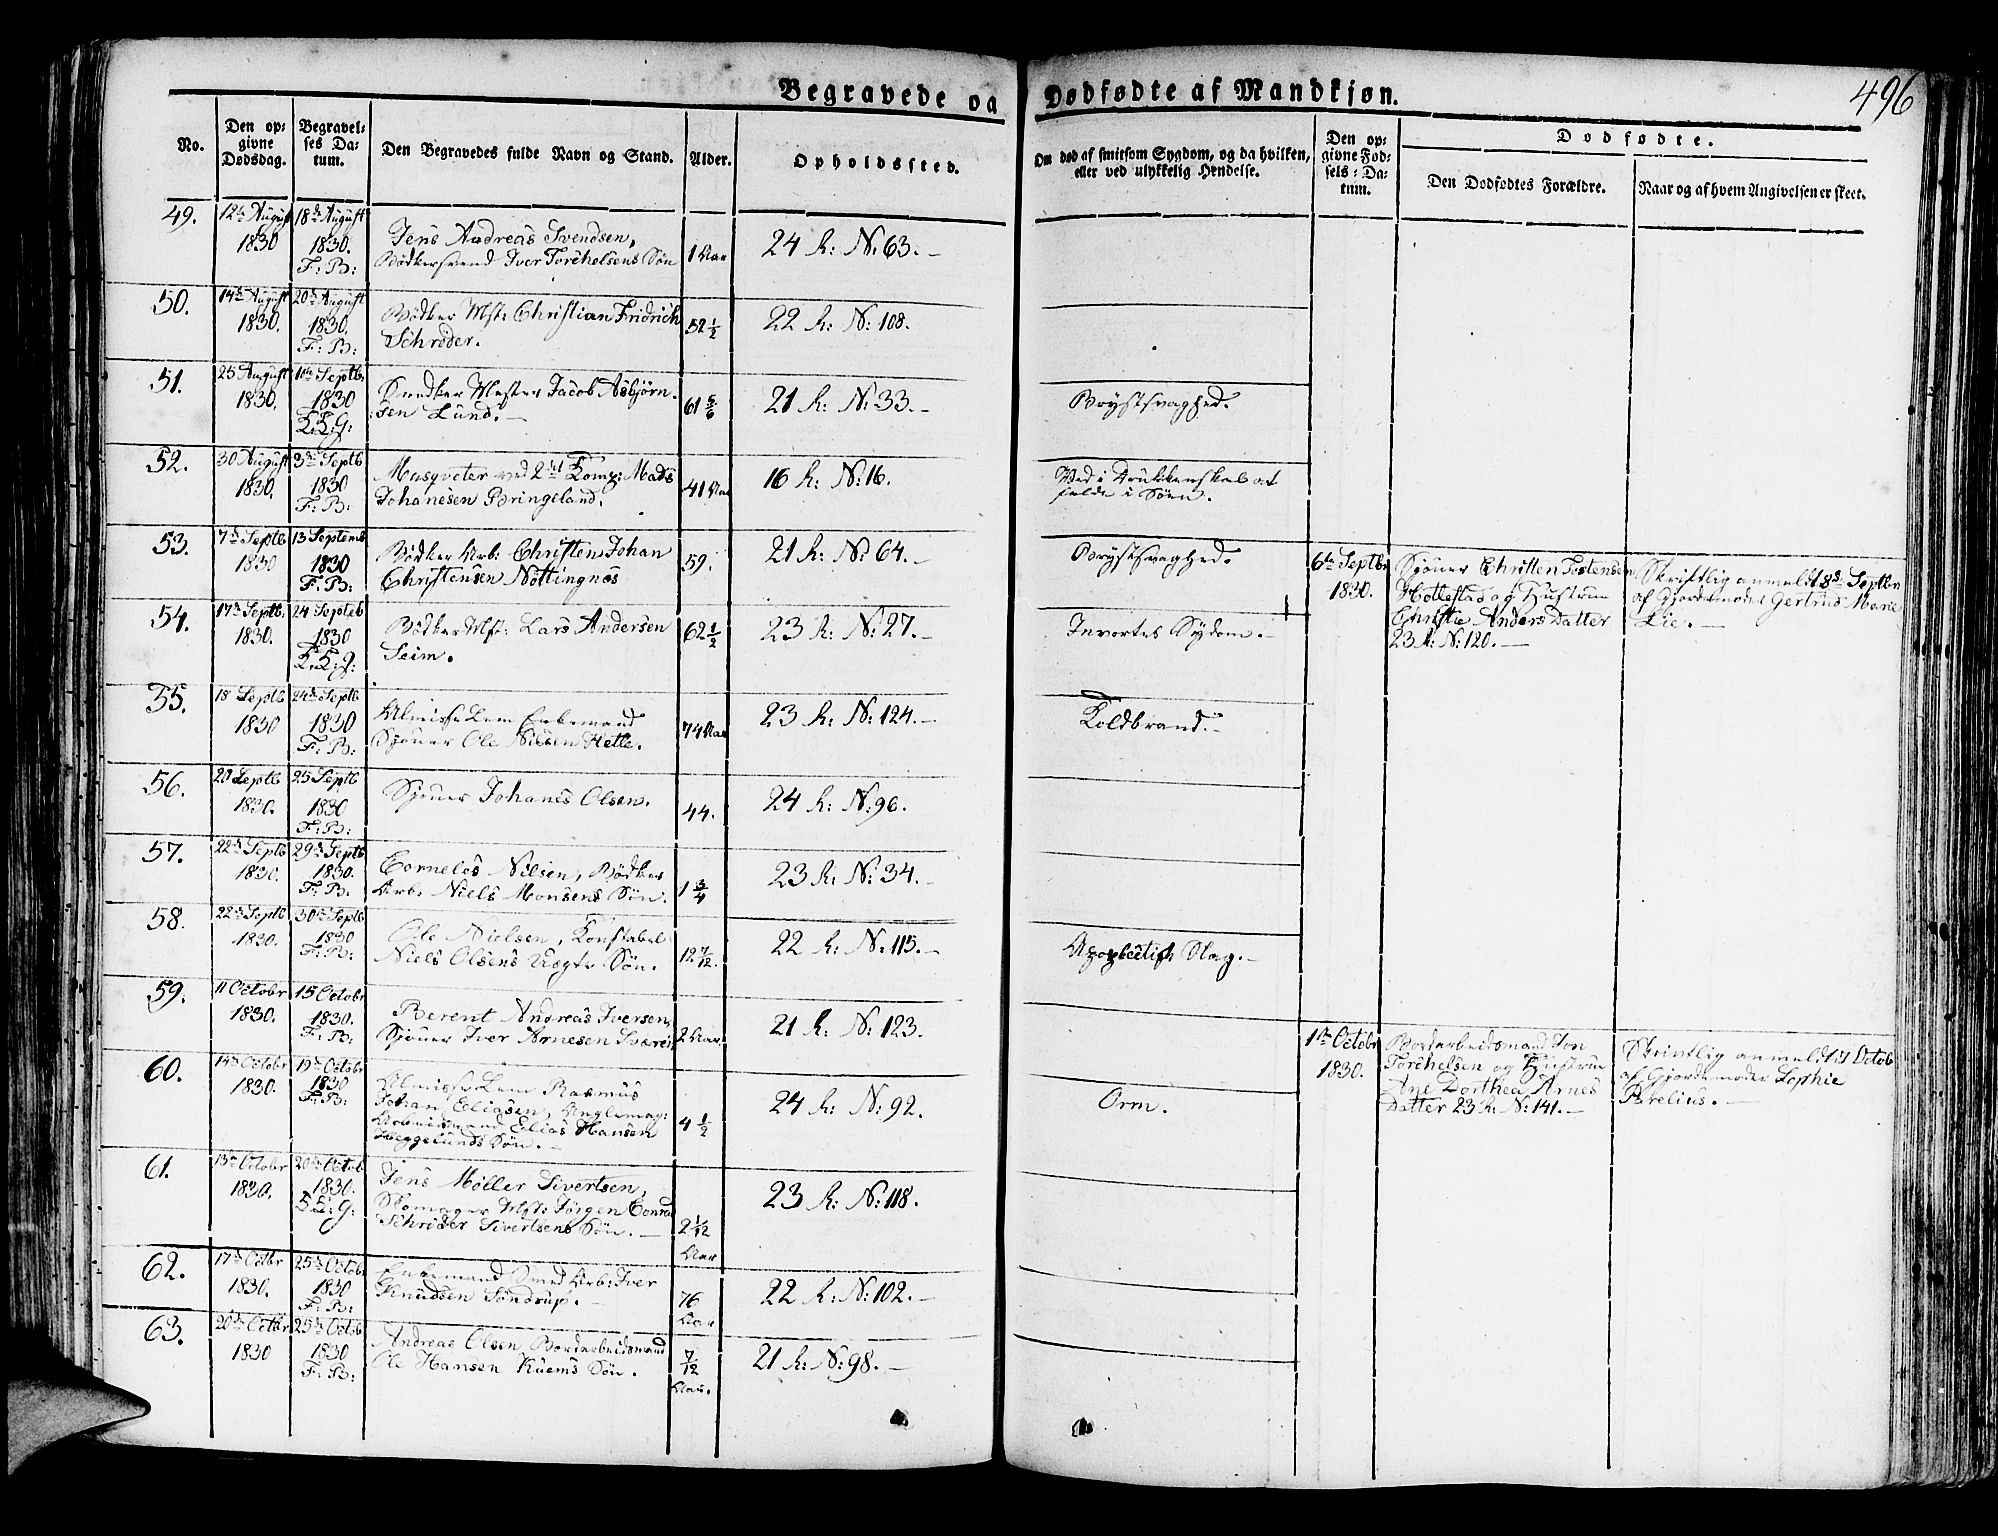 Begravede og Dødfødte af Mandkjøn.
496
No.
Den op-
givne
Dødsdag.
Begravel-
ses Da-
tum.
Den Begravedes fulde Navn og Stand.
Alder.
Opholdssted.
Om død af smitsom Sygdom, og da hvilken,
eller ved ulykkelig Hendelse.
Den op-
givne Fød-
sels-Da-
tum.
Dødfødte.
Den Dødfødtes Forældre.
Naar og af hvem Angivelsen er skeet.
49.
12te August
1830
18de August
1830.
F: B:
Jens Andreas Svendsen,
Bødkersvend Iver Torchelsens Søn
1 Aar
24 R: N: 63.
50.
14de August
1830.
20de August
1830.
F: B:
Bødker Mst: Christian Fridrich
Schrøder.
52 1/2
22 R: N: 108.
51.
25 August
1830.
1ste Septb.
1830
Mester Jacob Asbjørn-
sen Lund.
61 5/6
21 R: N: 33.
Brystsvaghed.
52.
30 August
1830.
3de Septb
1830
F: B:
Musqveter ved 2det Komp: Mads
Johanesen Bringeland.
41 Aar
16 R: N: 16.
Ved i Drukkenskab at
falde i Søen.
53.
7de Septb
1830
13 Septemb
1830
F: B:
Bødker Arb: Christen Johan
Christensen Nøttingnes
59.
21 R: N: 64.
Brystsvaghed.
6te Septbr
1830.
Sjouer Christen Tostensen
Hollestad og Hustrue
Christie Anders Datter
23 R: N: 120.
Skriftlig anmeldt 8de Septbr
af Gjordemoder Gertrud Marie
Lie.
54.
17de Septb.
1830.
24 Septeb
1830
Bødker Mst: Lars Andersen
Seim.
62 1/2
23 R: N: 27.
Invortes Sygdom.
55.
18 Septb
1830
24de Septb
1830
F: B:
Almisse Lem Enkemand
Sjouer Ole Nilsen Hetle.
74 Aar
23 R: N: 124.
Koldbrand.
56.
20 Septb
1830.
25 Septb
1830
F: B:
Sjouer Johanes Olsen.
44.
24 R: N: 96.
57.
22de Septb
1830.
29de Septb
1830.
F: B.
Corneles Nilsen, Bødker
Arb: Niels Monsens Søn.
1 3/4
23 R: N: 34.
58.
22de Septb
1830.
30te Septb
1830
F: B:
Ole Nielsen, Konstabel
Niels Olsens Søn.
12 7/12.
22 R: N: 115.
Apoplectisk Slag.
59.
11 Octobr
1830.
15 Octobr
1830.
F: B:
Berent Andreas Iversen,
Sjouer Iver Arnesen
2 Aar.
21 R: N: 123.
1ste Octobr
1830.
Bordarbeidsmand Jon
Torchelsen og Hustrue
Ane Dorthea Arnes
Datter 23 R: N: 141.
Skriftlig anmeldt Octob
af Gjordemoder Sophie
60.
14de Octobr
1830.
19de Octobr
1830
F: B:
Almisse Lem Rasmus
Johan Eliasen,
Arbeidsmand Elias Hansen
Heggelunds Søn.
4 1/2
24 R: N: 92.
Orm.
61.
13de Octobr
1830.
20de Octob
1830.
Jens Møller Sivertsen,
Skomager Mst: Jørgen Conrad
Schrider Sivertsens Søn.
2 1/12
Aar
23 R: N: 118.
62.
17de Octbr
1830.
25de Octob
1830
F: B:
Enkemand Smed Arb: Iver
Knudsen Søndrup.
76
Aar
22 R: N: 102.
63.
20de Octbr
1830
25de Octob
1830
F: B:
Andreas Olsen Bordarbeidsmand
Ole Hansen Kuems Søn.
7/12
Aar.
21 R: N: 98.